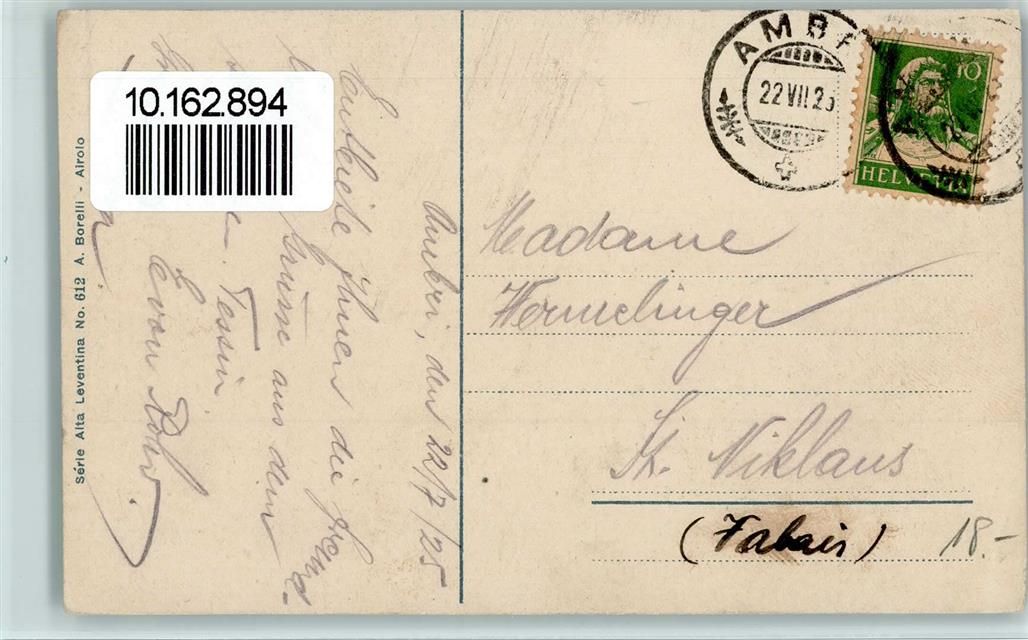 10.162.894
Série Alta Leventina No. 612 A. Borelli - Airolo
Ambri, den 22/7/25
Entbiete Ihnen die freund-
Grüsse aus dem
Tessin.
AMBR
22 VII 25
10
HELVETIA
Madame
Wermelinger
St. Niklaus
(Valais)
18.-